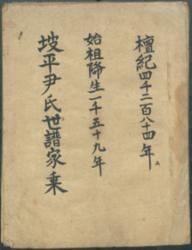 檀紀四千二百八十四年
始祖降生一千五十九年
坡平尹氏世譜家乗